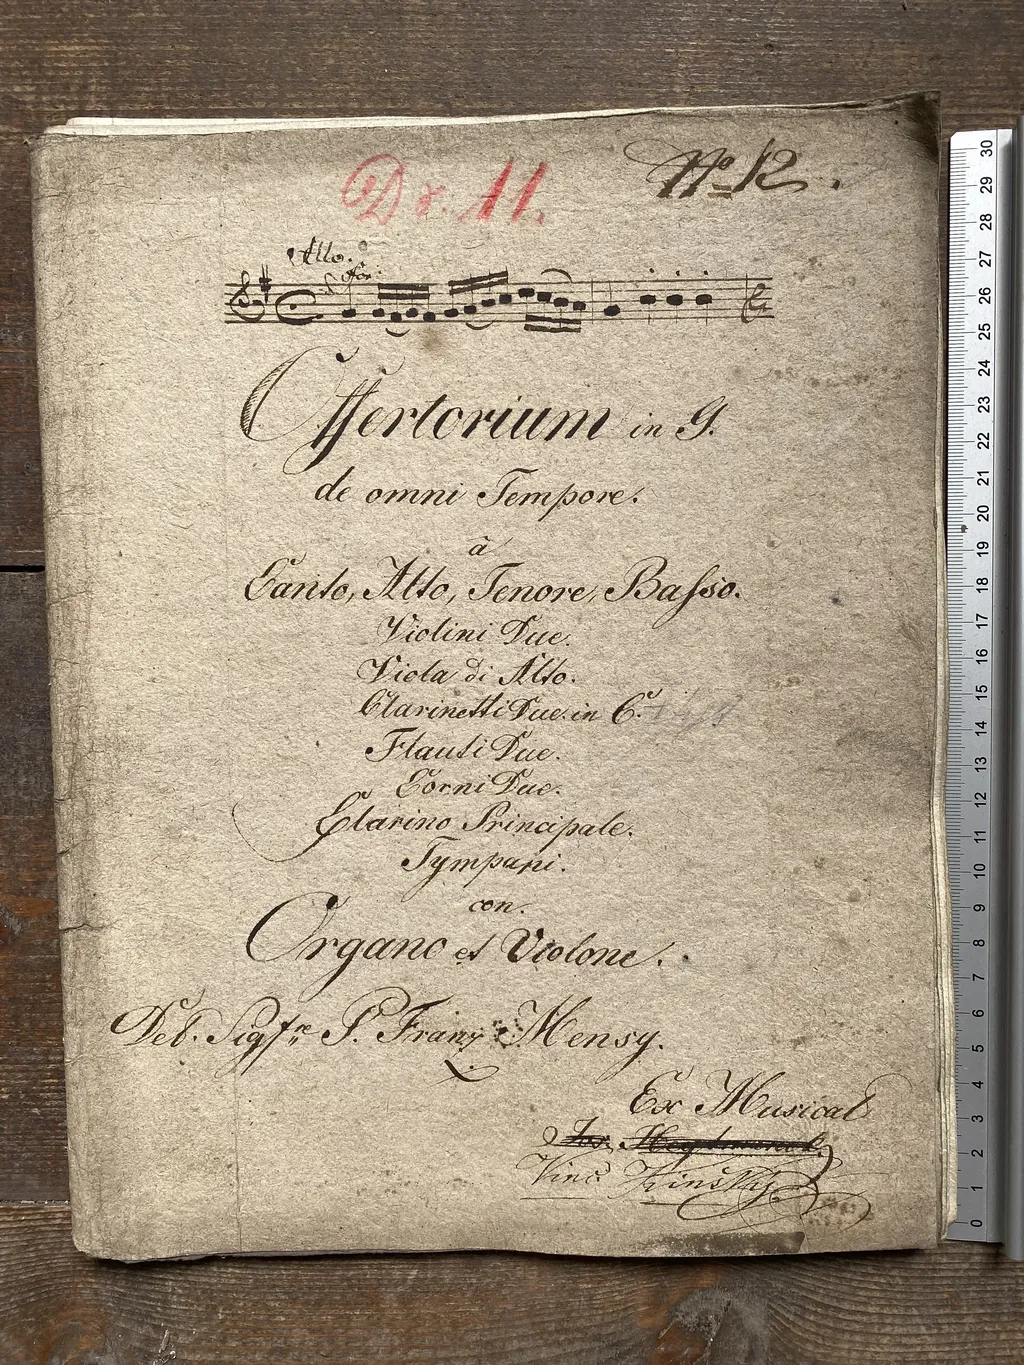 Nro 12.
Dr. 11.
Allo.
for:
Offertorium in G.
de omni Tempore.
à
Canto, Alto, Tenore, Basso.
Violini Due.
Viola di Alto.
Clarinetti Due in C.
Flauti Due.
Corni Due.
Clarino Principale.
Tympani.
con.
Organo et Violone.
Del. Sigre P. Franz Mensy.
Ex Musical
Jos.
Vinc Zinsky
30
29
28
27
26
25
24
23
22
21
20
19
18
17
16
15
14
13
12
11
10
9
8
7
6
5
4
3
2
1
0